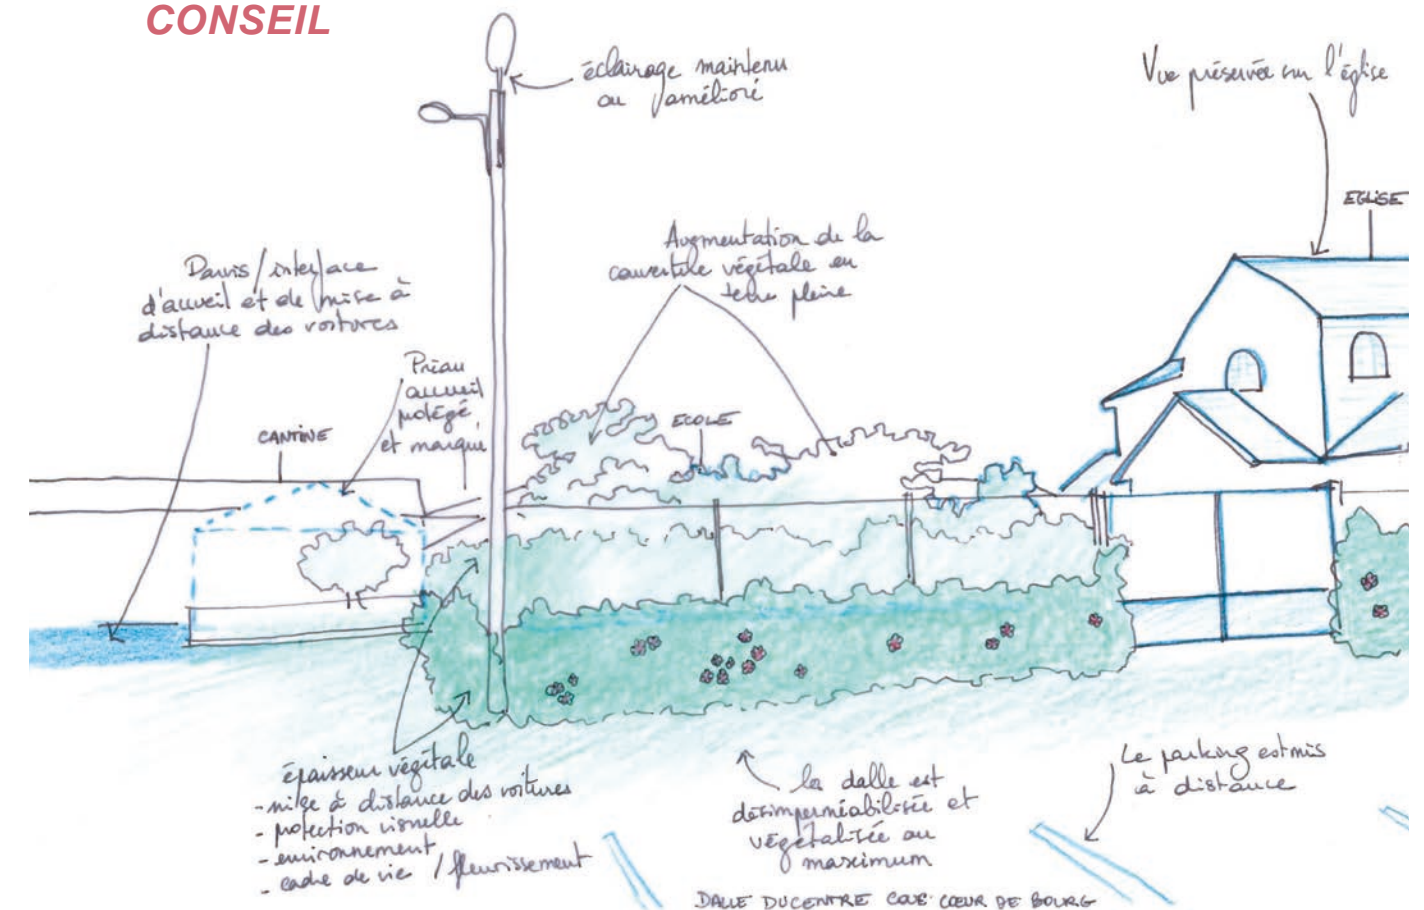 CONSEIL
éclairage maintenu
ou amélioré
Vue préservée sur l'église
EGLISE
Augmentation de la
couverture végétale en
terre pleine
Parvis/interface
d'accueil et de mise à
distance des voitures
Préau
accueil
protégé
et marqué
CANTINE
ECOLE
épaisseur végétale
- mise à distance des voitures
- protection visuelle
- environnement
- cadre de vie / fleurissement
la dalle est
désimperméabilisée et
végétalisée au
maximum
Le parking est mis
à distance
DALLE DU CENTRE COUR CŒUR DE BOURG